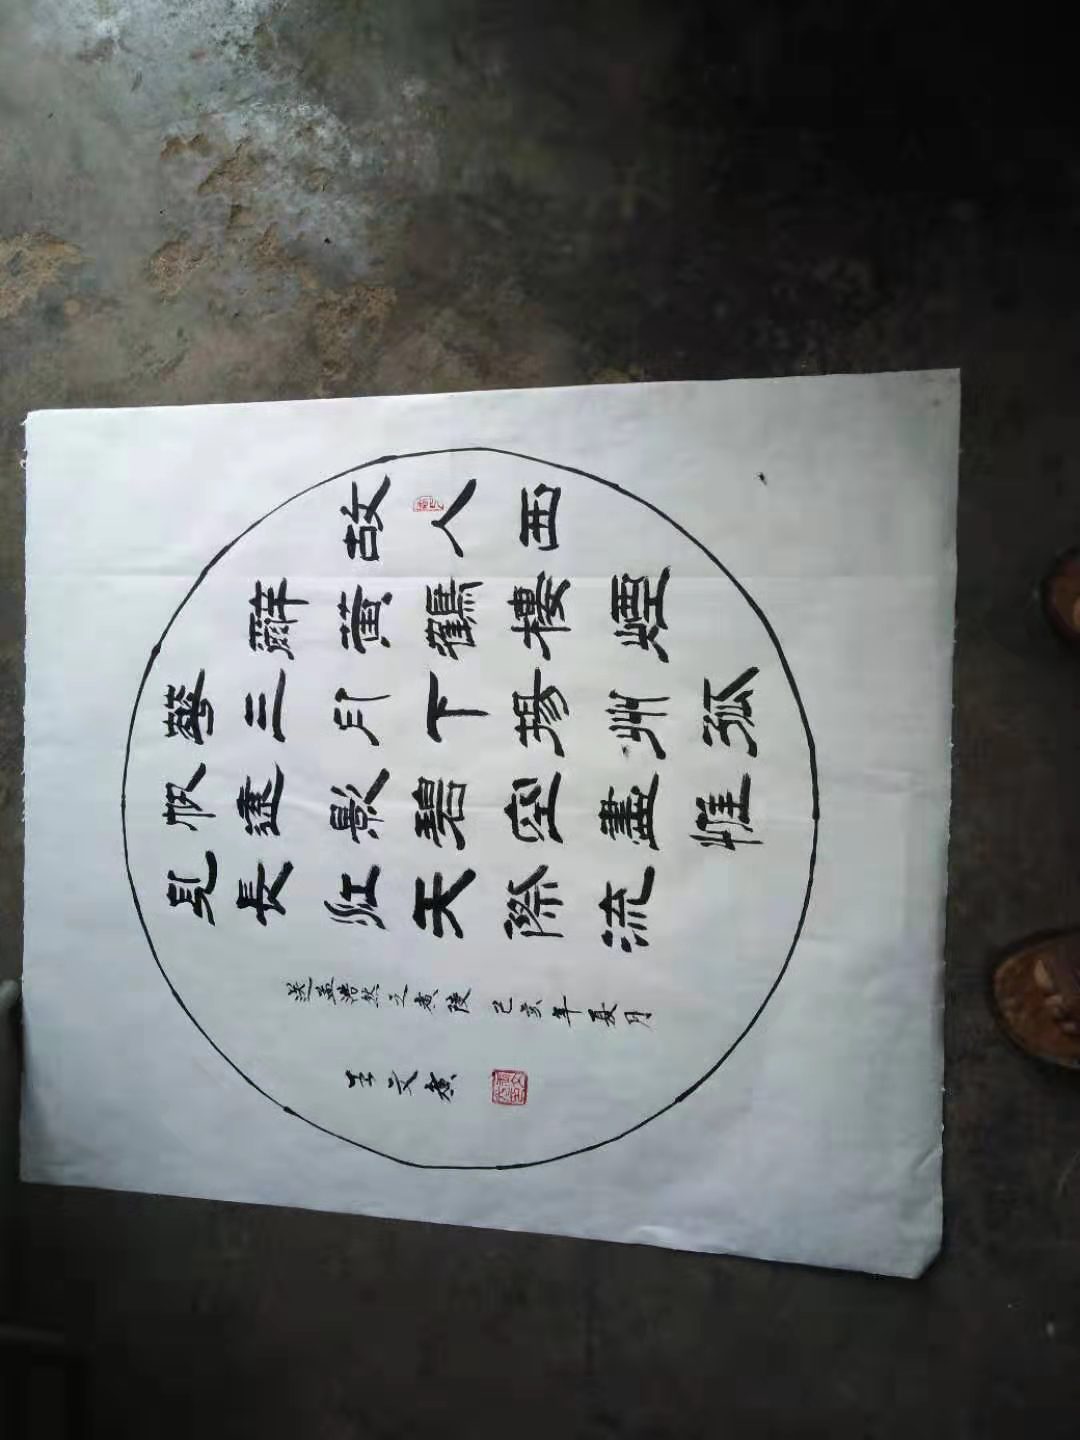 故人西
辭黃鶴樓煙
花三月下揚州孤
帆遠影碧空盡惟
見長江天際流
送孟浩然之廣陵 己亥年夏月
王文廣